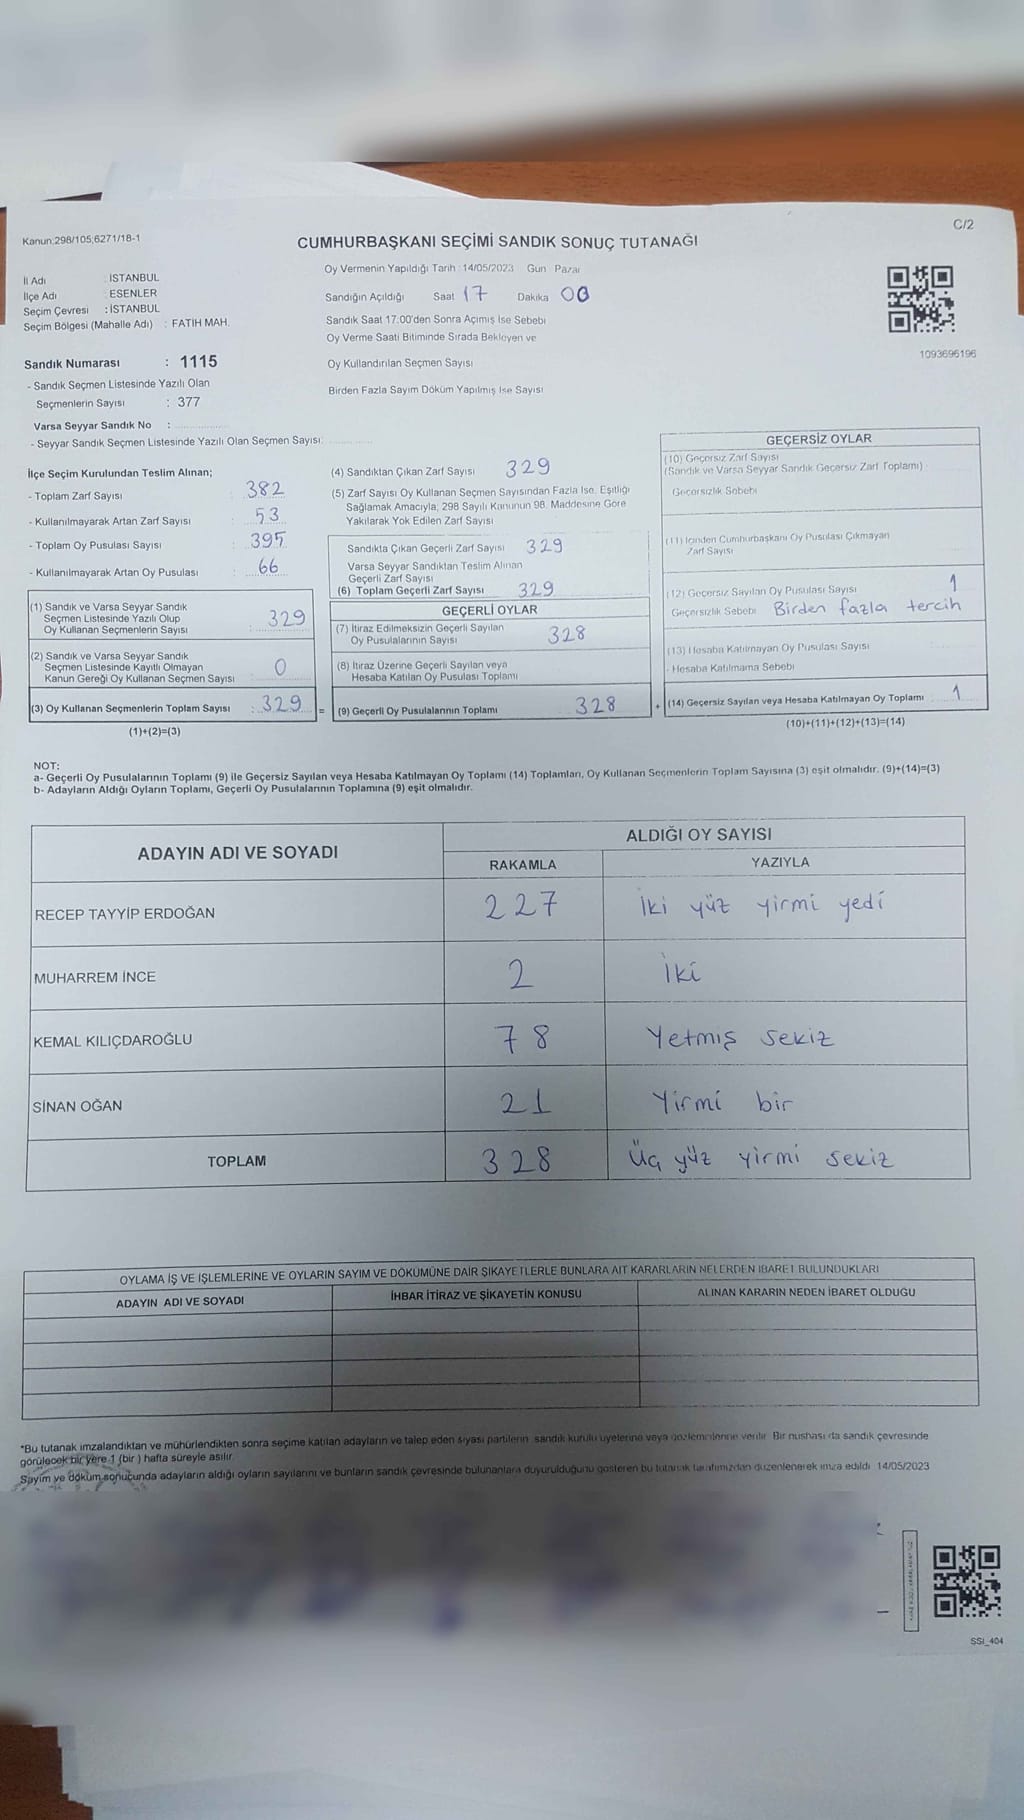 C/2
Kanun:298/105;6271/18-1
CUMHURBAŞKANI SEÇİMİ SANDIK SONUÇ TUTANAĞI
İl Adı : İSTANBUL
İlçe Adı : ESENLER
Seçim Çevresi : İSTANBUL
Seçim Bölgesi (Mahalle Adı) : FATİH MAH.
Oy Vermenin Yapıldığı Tarih : 14/05/2023 Gün Pazar
Sandığın Açıldığı Saat 17 Dakika 00
Sandık Saat 17.00'den Sonra Açımış İse Sebebi
Oy Verme Saati Bitiminde Sırada Bekleyen ve
Oy Kullandırılan Seçmen Sayısı
Birden Fazla Sayım Döküm Yapılmış İse Sayısı
1093696196
Sandık Numarası : 1115
- Sandık Seçmen Listesinde Yazılı Olan
Seçmenlerin Sayısı : 377
Varsa Seyyar Sandık No :
- Seyyar Sandık Seçmen Listesinde Yazılı Olan Seçmen Sayısı:
İlçe Seçim Kurulundan Teslim Alınan;
- Toplam Zarf Sayısı : 382
- Kullanılmayarak Artan Zarf Sayısı : 53
- Toplam Oy Pusulası Sayısı : 395
- Kullanılmayarak Artan Oy Pusulası : 66
(1) Sandık ve Varsa Seyyar Sandık
Seçmen Listesinde Yazılı Olup
Oy Kullanan Seçmenlerin Sayısı : 329
(2) Sandık ve Varsa Seyyar Sandık
Seçmen Listesinde Kayıtlı Olmayan
Kanun Gereği Oy Kullanan Seçmen Sayısı : 0
(3) Oy Kullanan Seçmenlerin Toplam Sayısı : 329 =
(1)+(2)=(3)
(4) Sandıktan Çıkan Zarf Sayısı 329
(5) Zarf Sayısı Oy Kullanan Seçmen Sayısından Fazla İse, Eşitliği
Sağlamak Amacıyla; 298 Sayılı Kanunun 98. Maddesine Göre
Yakılarak Yok Edilen Zarf Sayısı
Sandıkta Çıkan Geçerli Zarf Sayısı 329
Varsa Seyyar Sandıktan Teslim Alınan
Geçerli Zarf Sayısı
(6) Toplam Geçerli Zarf Sayısı 329
GEÇERLİ OYLAR
(7) İtiraz Edilmeksizin Geçerli Sayılan
Oy Pusulalarının Sayısı 328
(8) İtiraz Üzerine Geçerli Sayılan veya
Hesaba Katılan Oy Pusulası Toplamı
(9) Geçerli Oy Pusulalarının Toplamı 328 +
GEÇERSİZ OYLAR
(10) Geçersiz Zarf Sayısı
(Sandık ve Varsa Seyyar Sandık Geçersiz Zarf Toplamı)
Geçersizlik Sebebi
(11) İçinden Cumhurbaşkanı Oy Pusulası Çıkmayan
Zarf Sayısı
(12) Geçersiz Sayılan Oy Pusulası Sayısı 1
Geçersizlik Sebebi Birden fazla tercih
(13) Hesaba Katılmayan Oy Pusulası Sayısı
- Hesaba Katılmama Sebebi
(14) Geçersiz Sayılan veya Hesaba Katılmayan Oy Toplamı 1
(10)+(11)+(12)+(13)=(14)
NOT:
a- Geçerli Oy Pusulalarının Toplamı (9) ile Geçersiz Sayılan veya Hesaba Katılmayan Oy Toplamı (14) Toplamları, Oy Kullanan Seçmenlerin Toplam Sayısına (3) eşit olmalıdır. (9)+(14)=(3)
b- Adayların Aldığı Oyların Toplamı, Geçerli Oy Pusulalarının Toplamına (9) eşit olmalıdır.
ADAYIN ADI VE SOYADI
ALDIĞI OY SAYISI
RAKAMLA YAZIYLA
RECEP TAYYİP ERDOĞAN 227 İki yüz yirmi yedi
MUHARREM İNCE 2 İki
KEMAL KILIÇDAROĞLU 78 Yetmiş sekiz
SİNAN OĞAN 21 Yirmi bir
TOPLAM 328 Üç yüz yirmi sekiz
OYLAMA İŞ VE İŞLEMLERİNE VE OYLARIN SAYIM VE DÖKÜMÜNE DAİR ŞİKAYETLERLE BUNLARA AİT KARARLARIN NELERDEN İBARET BULUNDUKLARI
ADAYIN ADI VE SOYADI İHBAR İTİRAZ VE ŞİKAYETİN KONUSU ALINAN KARARIN NEDEN İBARET OLDUĞU
*Bu tutanak imzalandıktan ve mühürlendikten sonra seçime katılan adayların ve talep eden siyasi partilerin sandık kurulu üyelerine veya gözlemcilerine verilir. Bir nushası da sandık çevresinde
görülecek bir yere 1 (bir ) hafta süreyle asılır.
Sayım ve döküm sonucunda adayların aldığı oyların sayılarını ve bunların sandık çevresinde bulunanlara duyurulduğunu gösteren bu tutanak tarafımızdan düzenlenerek imza edildi 14/05/2023
SSI_404